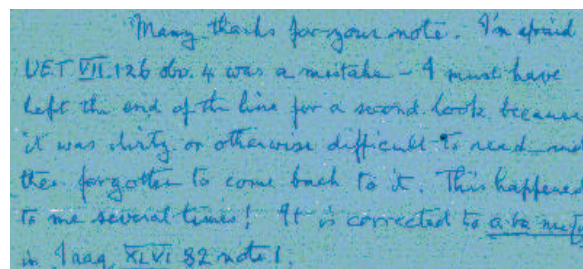 Many thanks for your note. I'm afraid
UET VII 126 obv. 4 was a mistake – I must have
left the end of the line for a second look because
it was dirty or otherwise difficult to read and
then forgotten to come back to it. This happened
to me several times! It is corrected to
in Iraq XLVI 82 note 1.